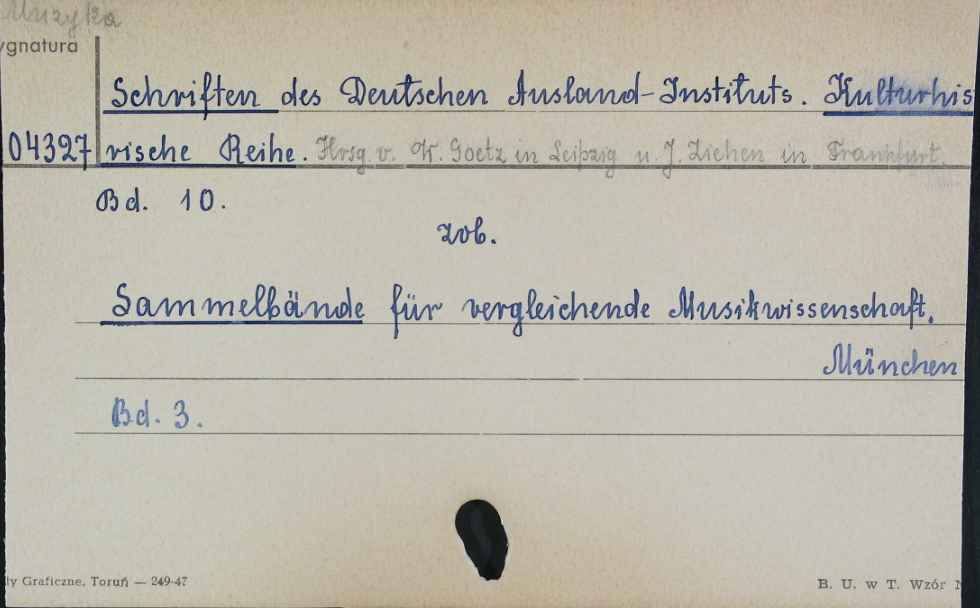 Muzyka
ygnatura
Schriften des Deutschen Ausland-Instituts. Kulturhis
04327 rische Reihe. Hrsg. v. W. Goetz in Leipzig u. J. Ziehen in Frankfurt.
Bd. 10.
zob.
Sammelbände für vergleichende Musikwissenschaft.
München
Bd. 3.
ły Graficzne, Toruń — 249-47
B. U. w T. Wzór